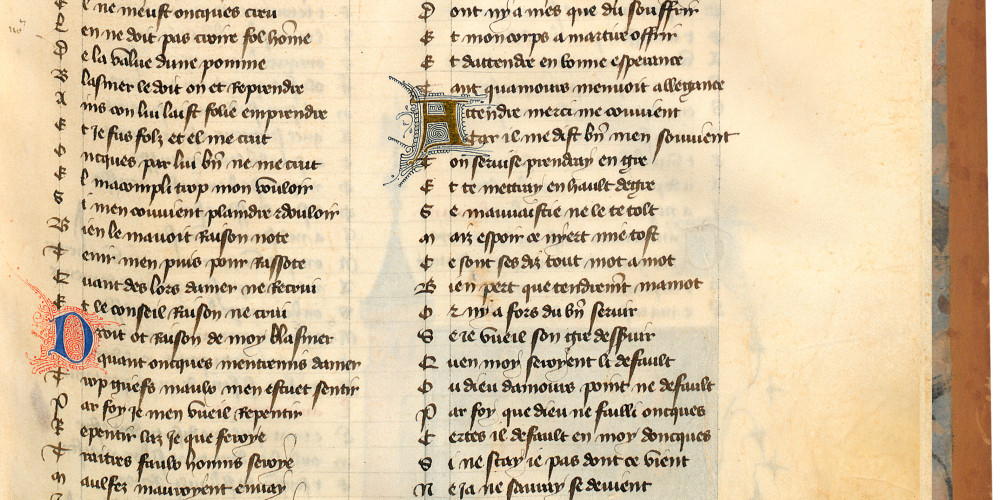 l ne meust oncques creu
en ne doit pas croire fol home
D e la value dune pomme
B lasmer le doit on et Reprendre
A ins con lui laist folie emprendre
E t Je fus folz et el me crut
O ncques par lui bn ne me crut
E l macompli trop mon vouloir
S i men couvient plaindre & douloir
B ien le mavoit Raison note
T enir men puis pour Rassote
Q uant des lors damer ne Recrui
E t le conseil Raison ne crui
D roit ot Raison de moy blasmer
quant oncques mentremis damer
T rop griefs maulx men estuet sentir
P ar foy Je men vueil Repentir
R epentir laz Je que feroye
T raitres faulx honnis seroye
M aulfez mauroyent envay
D ont ny a mes que du souffrir
E t mon corps a martire offrir
E t dattendre en bonne esperance
T ant quamours menvoit allegance
A ttendre merci me couvient
Car il me dist bn men souvient
T on servise prendray en gre
E t te mettray en hault degre
S e mauvaistie ne le te tolt
M aiz espoir ce nyert mie tost
C e sont ses diz tout mot a mot
B ien pert que tendremt mamot
O r ny a fors du bn servir
S e ie vueil son gre desservir
Q uen moy seroyent li default
O u dieu damours point ne default
P ar foy que dieu ne failli oncques
C ertes il default en moy doncques
S i ne scay ie pas dont ce vient
N e ia ne sauray se devient